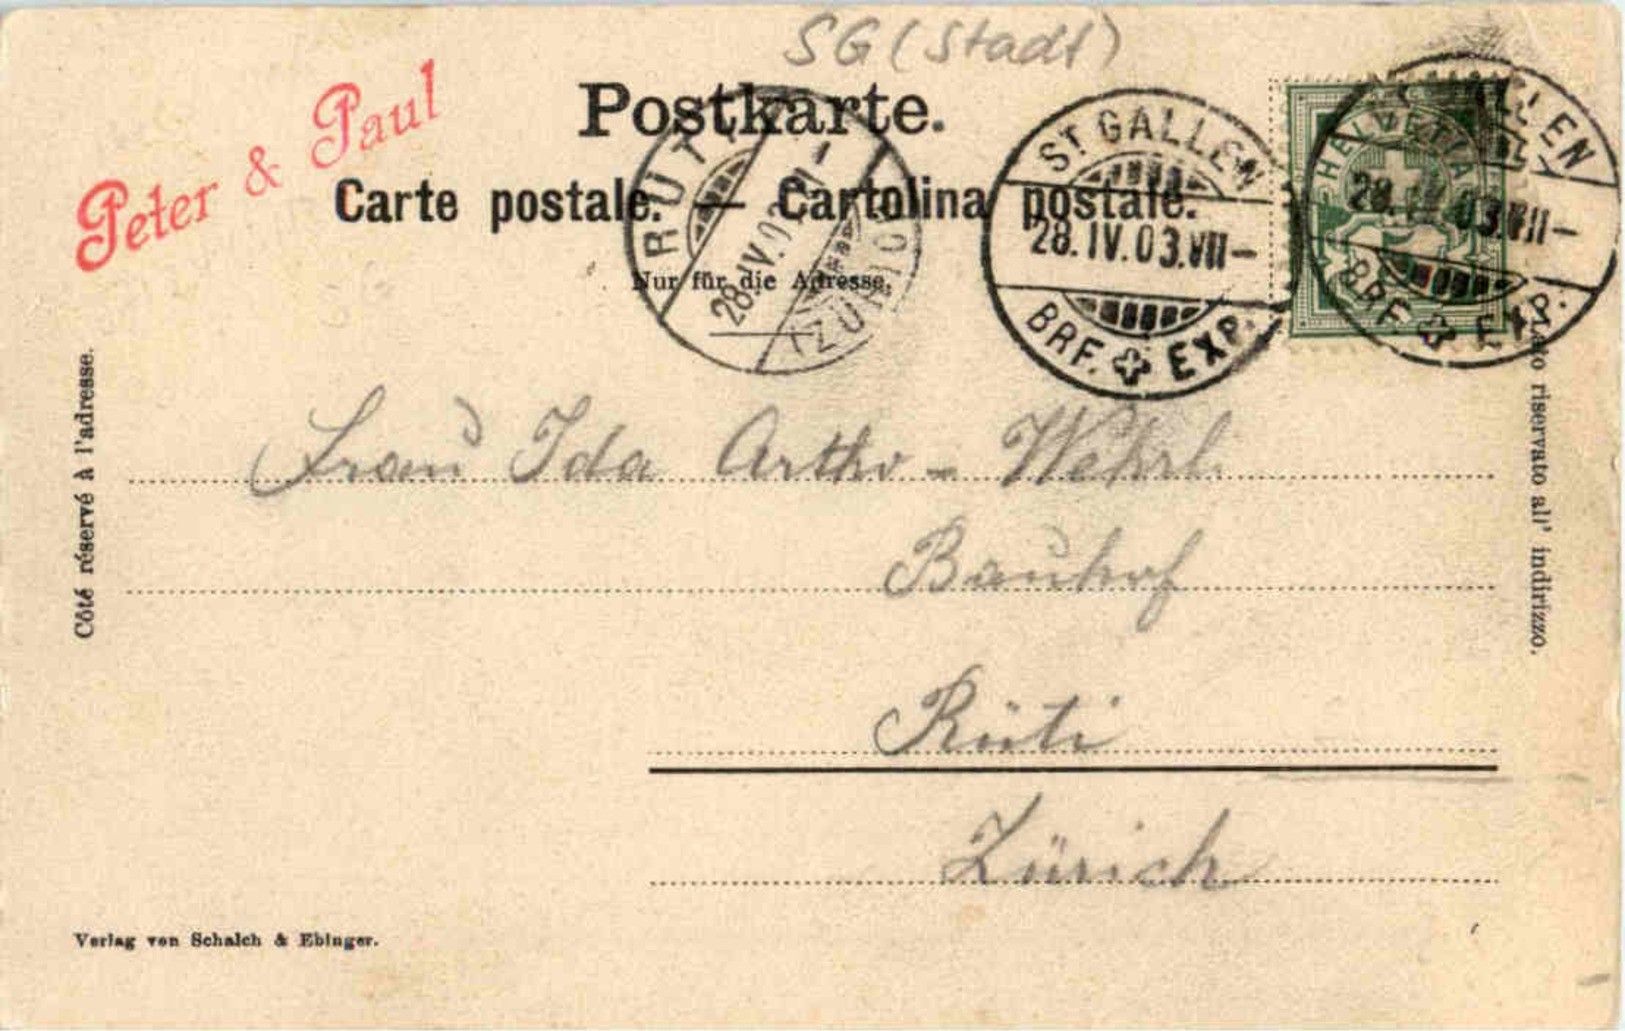 SG (Stadt)
Peter & Paul
Postkarte.
Carte postale. — Cartolina postale.
Nur für die Adresse.
RÜTI
28.IV.03
(ZÜRICH)
ST. GALLEN
28.IV.03.VII-
BRF. EXP.
HELVETIA
5
GALLEN
28.IV.03.VII-
BRF. EXP.
Côté réservé à l'adresse.
Lato riservato all' indirizzo.
Frau Ida Artho - Wehrli
Bauhof
Rüti
Zürich
Verlag von Schalch & Ebinger.